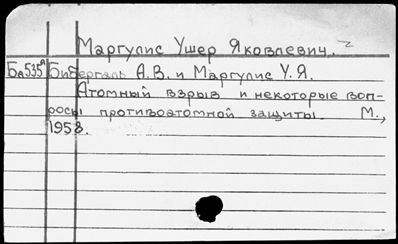 Маргулис Ушер Яковлевич.
Ба535а Бибергаль А.В. и Маргулис У.Я.
Атомный взрыв и некоторые воп-
росы противоатомной защиты. М.,
1958.